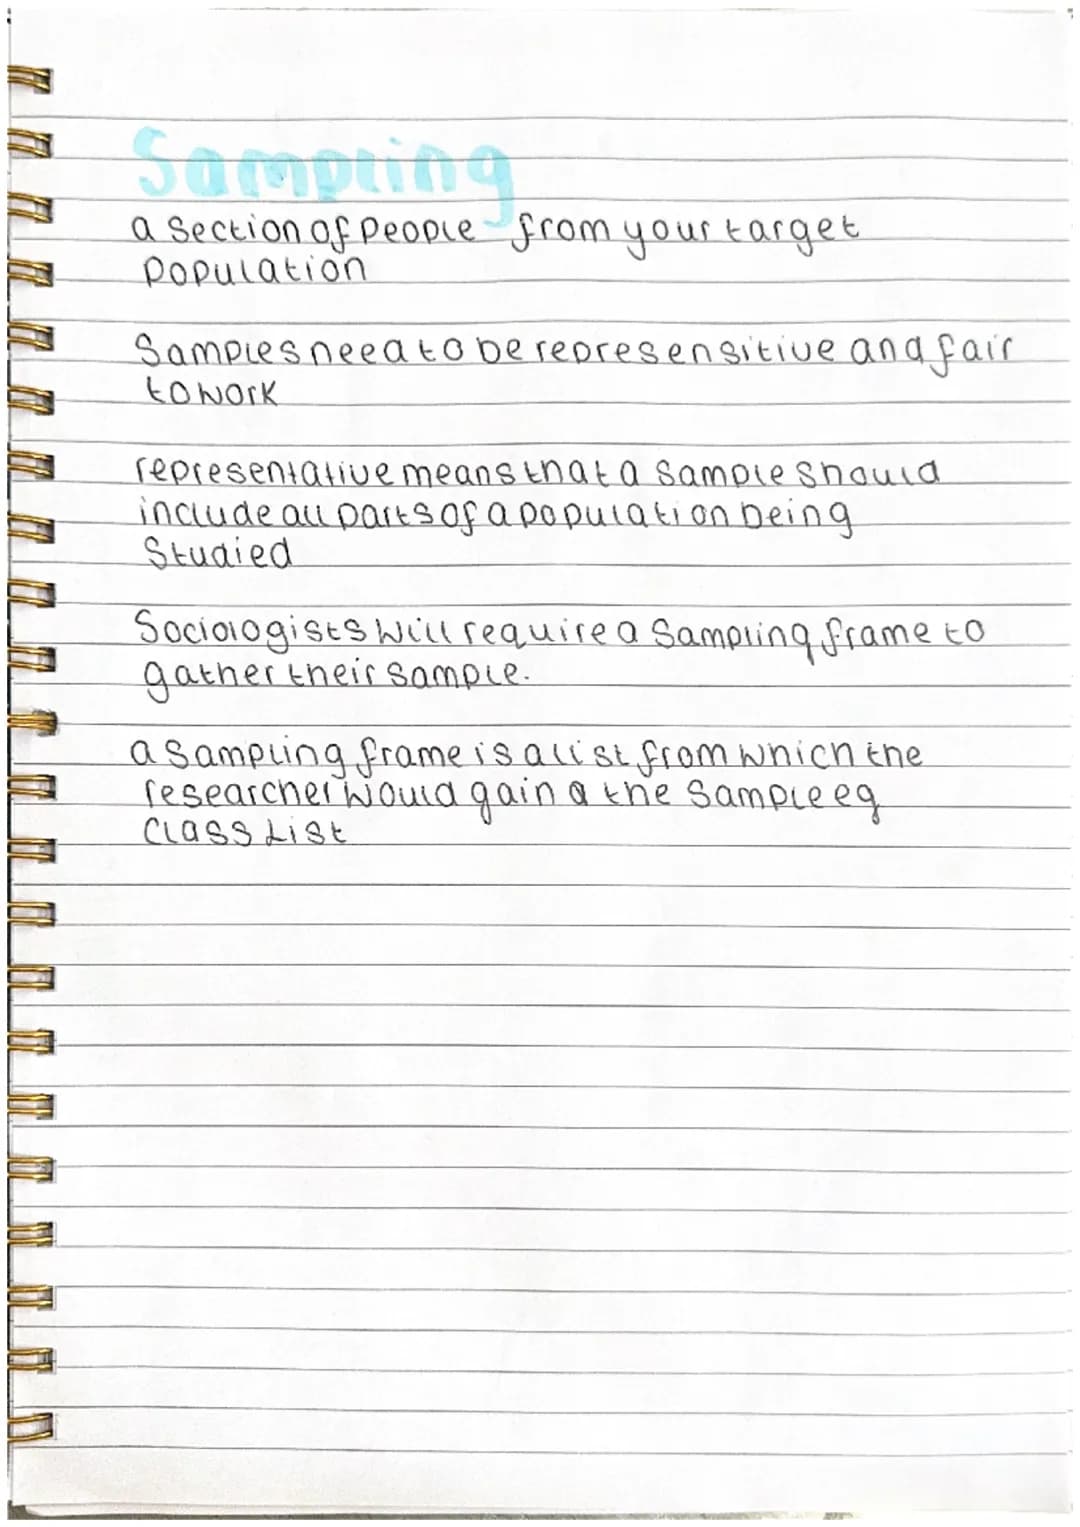 Sampling
a section of people from your target
population
Samples need to be represensitive and fair
to work
representative means that a sample should
include all parts of a population being
studied
Sociologists will require a sampling frame to
gather their sample.
a sampling frame is a list from which the
researcher would gain a the sample eg
class list